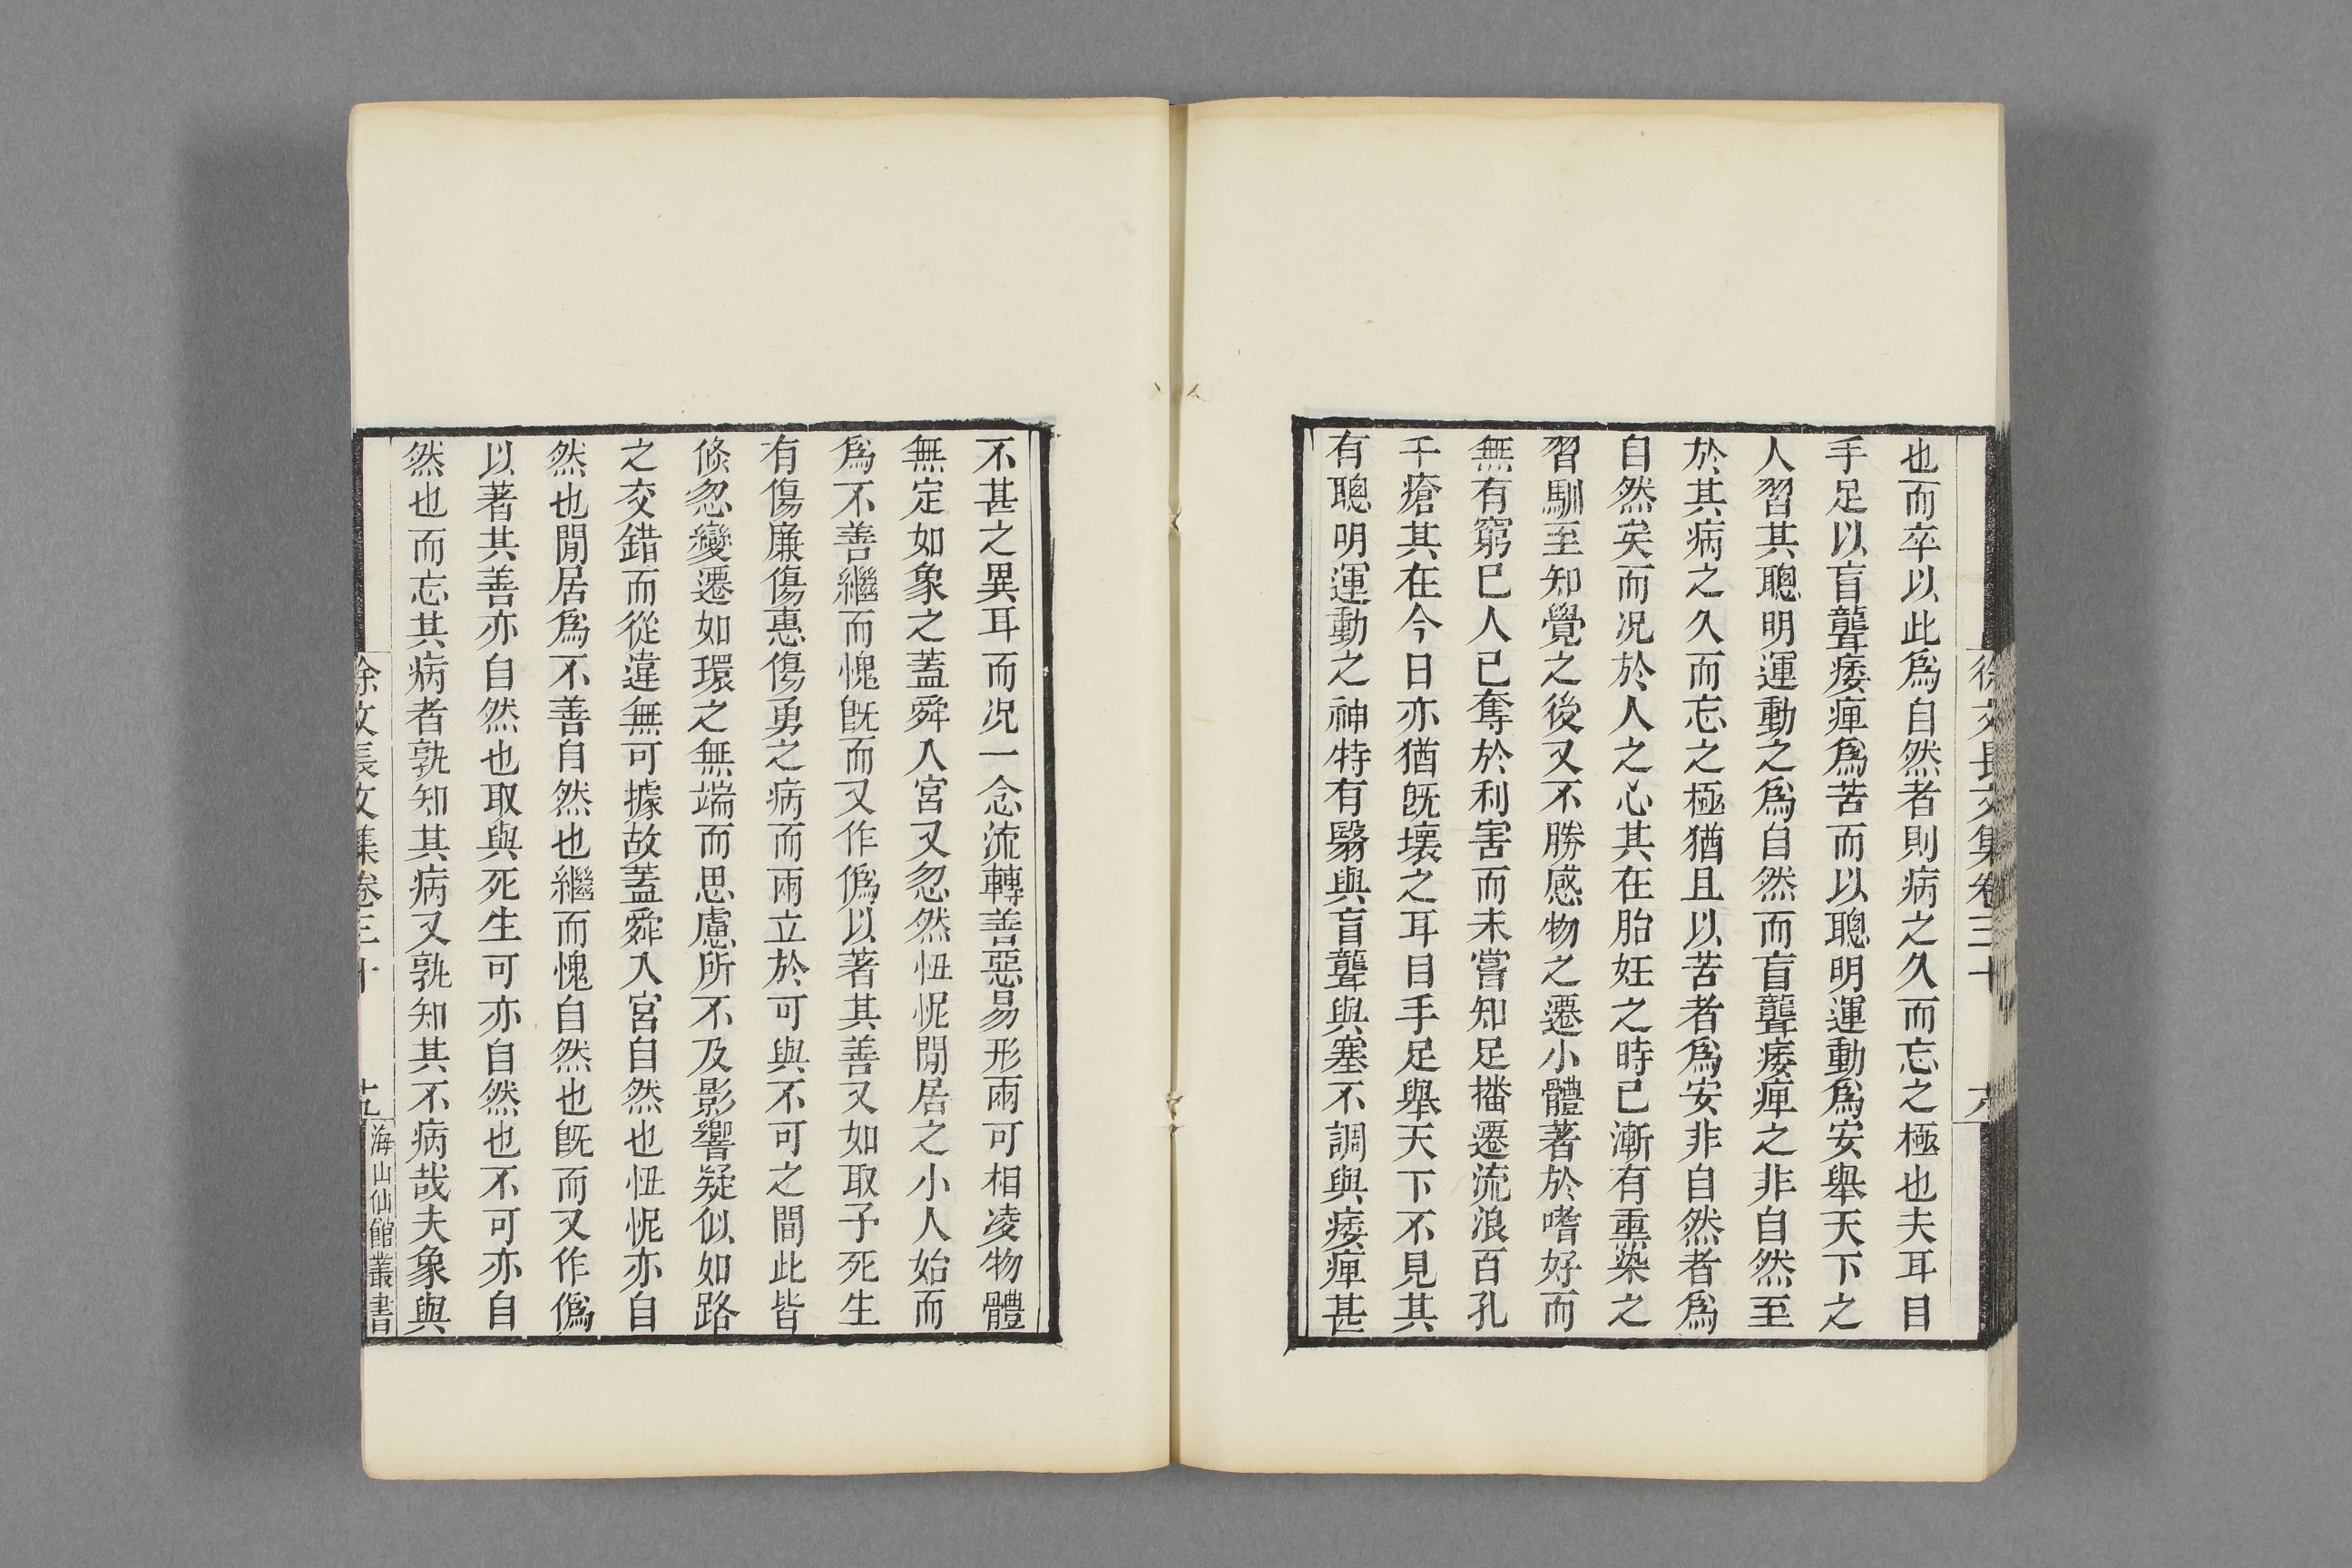 徐文長文集卷三十 六
也而卒以此爲自然者則病之久而忘之極也夫耳目
手足以盲聾痿痺爲苦而以聰明運動爲安舉天下之
人習其聰明運動之爲自然而盲聾痿痺之非自然至
於其病之久而忘之極猶且以苦者爲安非自然者爲
自然矣而况於人之心其在胎妊之時已漸有熏染之
習馴至知覺之後又不勝感物之遷小體著於嗜好而
無有窮巳人已奪於利害而未嘗知足播遷流浪百孔
千瘡其在今日亦猶旣壞之耳目手足舉天下不見其
有聰明運動之神特有翳與盲聾與塞不調與痿痺甚
不甚之異耳而况一念流轉善惡易形兩可相凌物體
無定如象之蓋舜入宮又忽然忸怩閒居之小人始而
爲不善繼而愧旣而又作僞以著其善又如取予死生
有傷廉傷惠傷勇之病而兩立於可與不可之間此皆
倏忽變遷如環之無端而思慮所不及影響疑似如路
之交錯而從違無可據故蓋舜入宮自然也忸怩亦自
然也閒居爲不善自然也繼而愧自然也旣而又作僞
以著其善亦自然也取與死生可亦自然也不可亦自
然也而忘其病者孰知其病又孰知其不病哉夫象與
徐文長文集卷三十
海山仙館叢書